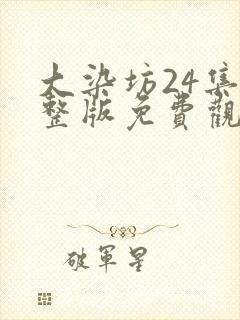 大染坊24集
整版免費觀
破軍星